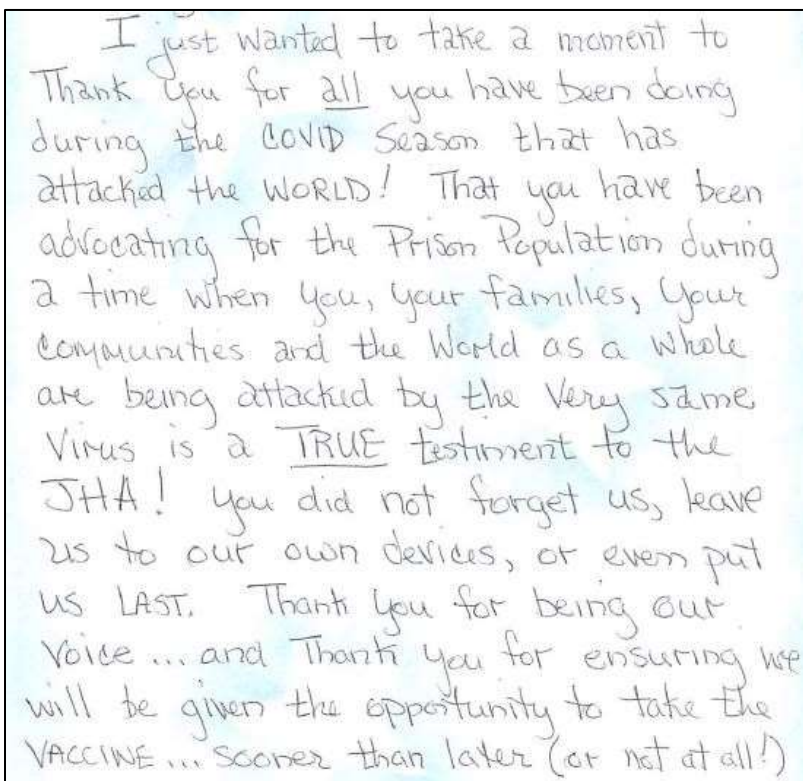 I just wanted to take a moment to
Thank you for all you have been doing
during the COVID Season that has
attacked the WORLD! That you have been
advocating for the Prison Population during
a time when you, your families, your
communities and the World as a whole
are being attacked by the very same
Virus is a TRUE testiment to the
JHA! you did not forget us, leave
us to our own devices, or even put
us LAST. Thank you for being our
Voice ... and Thank you for ensuring we
will be given the opportunity to take the
VACCINE ... sooner than later (or not at all!)